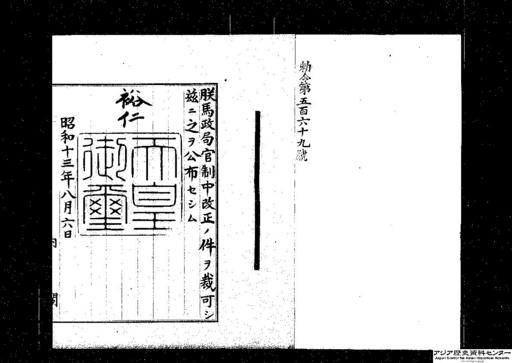 勅令第五百六十九號
朕馬政局官制中改正ノ件ヲ裁可シ
茲ニ之ヲ公布セシム
裕仁
天皇
御璽
昭和十三年八月六日
内閣
アジア歴史資料センター
Japan Center for Asian Historical Records